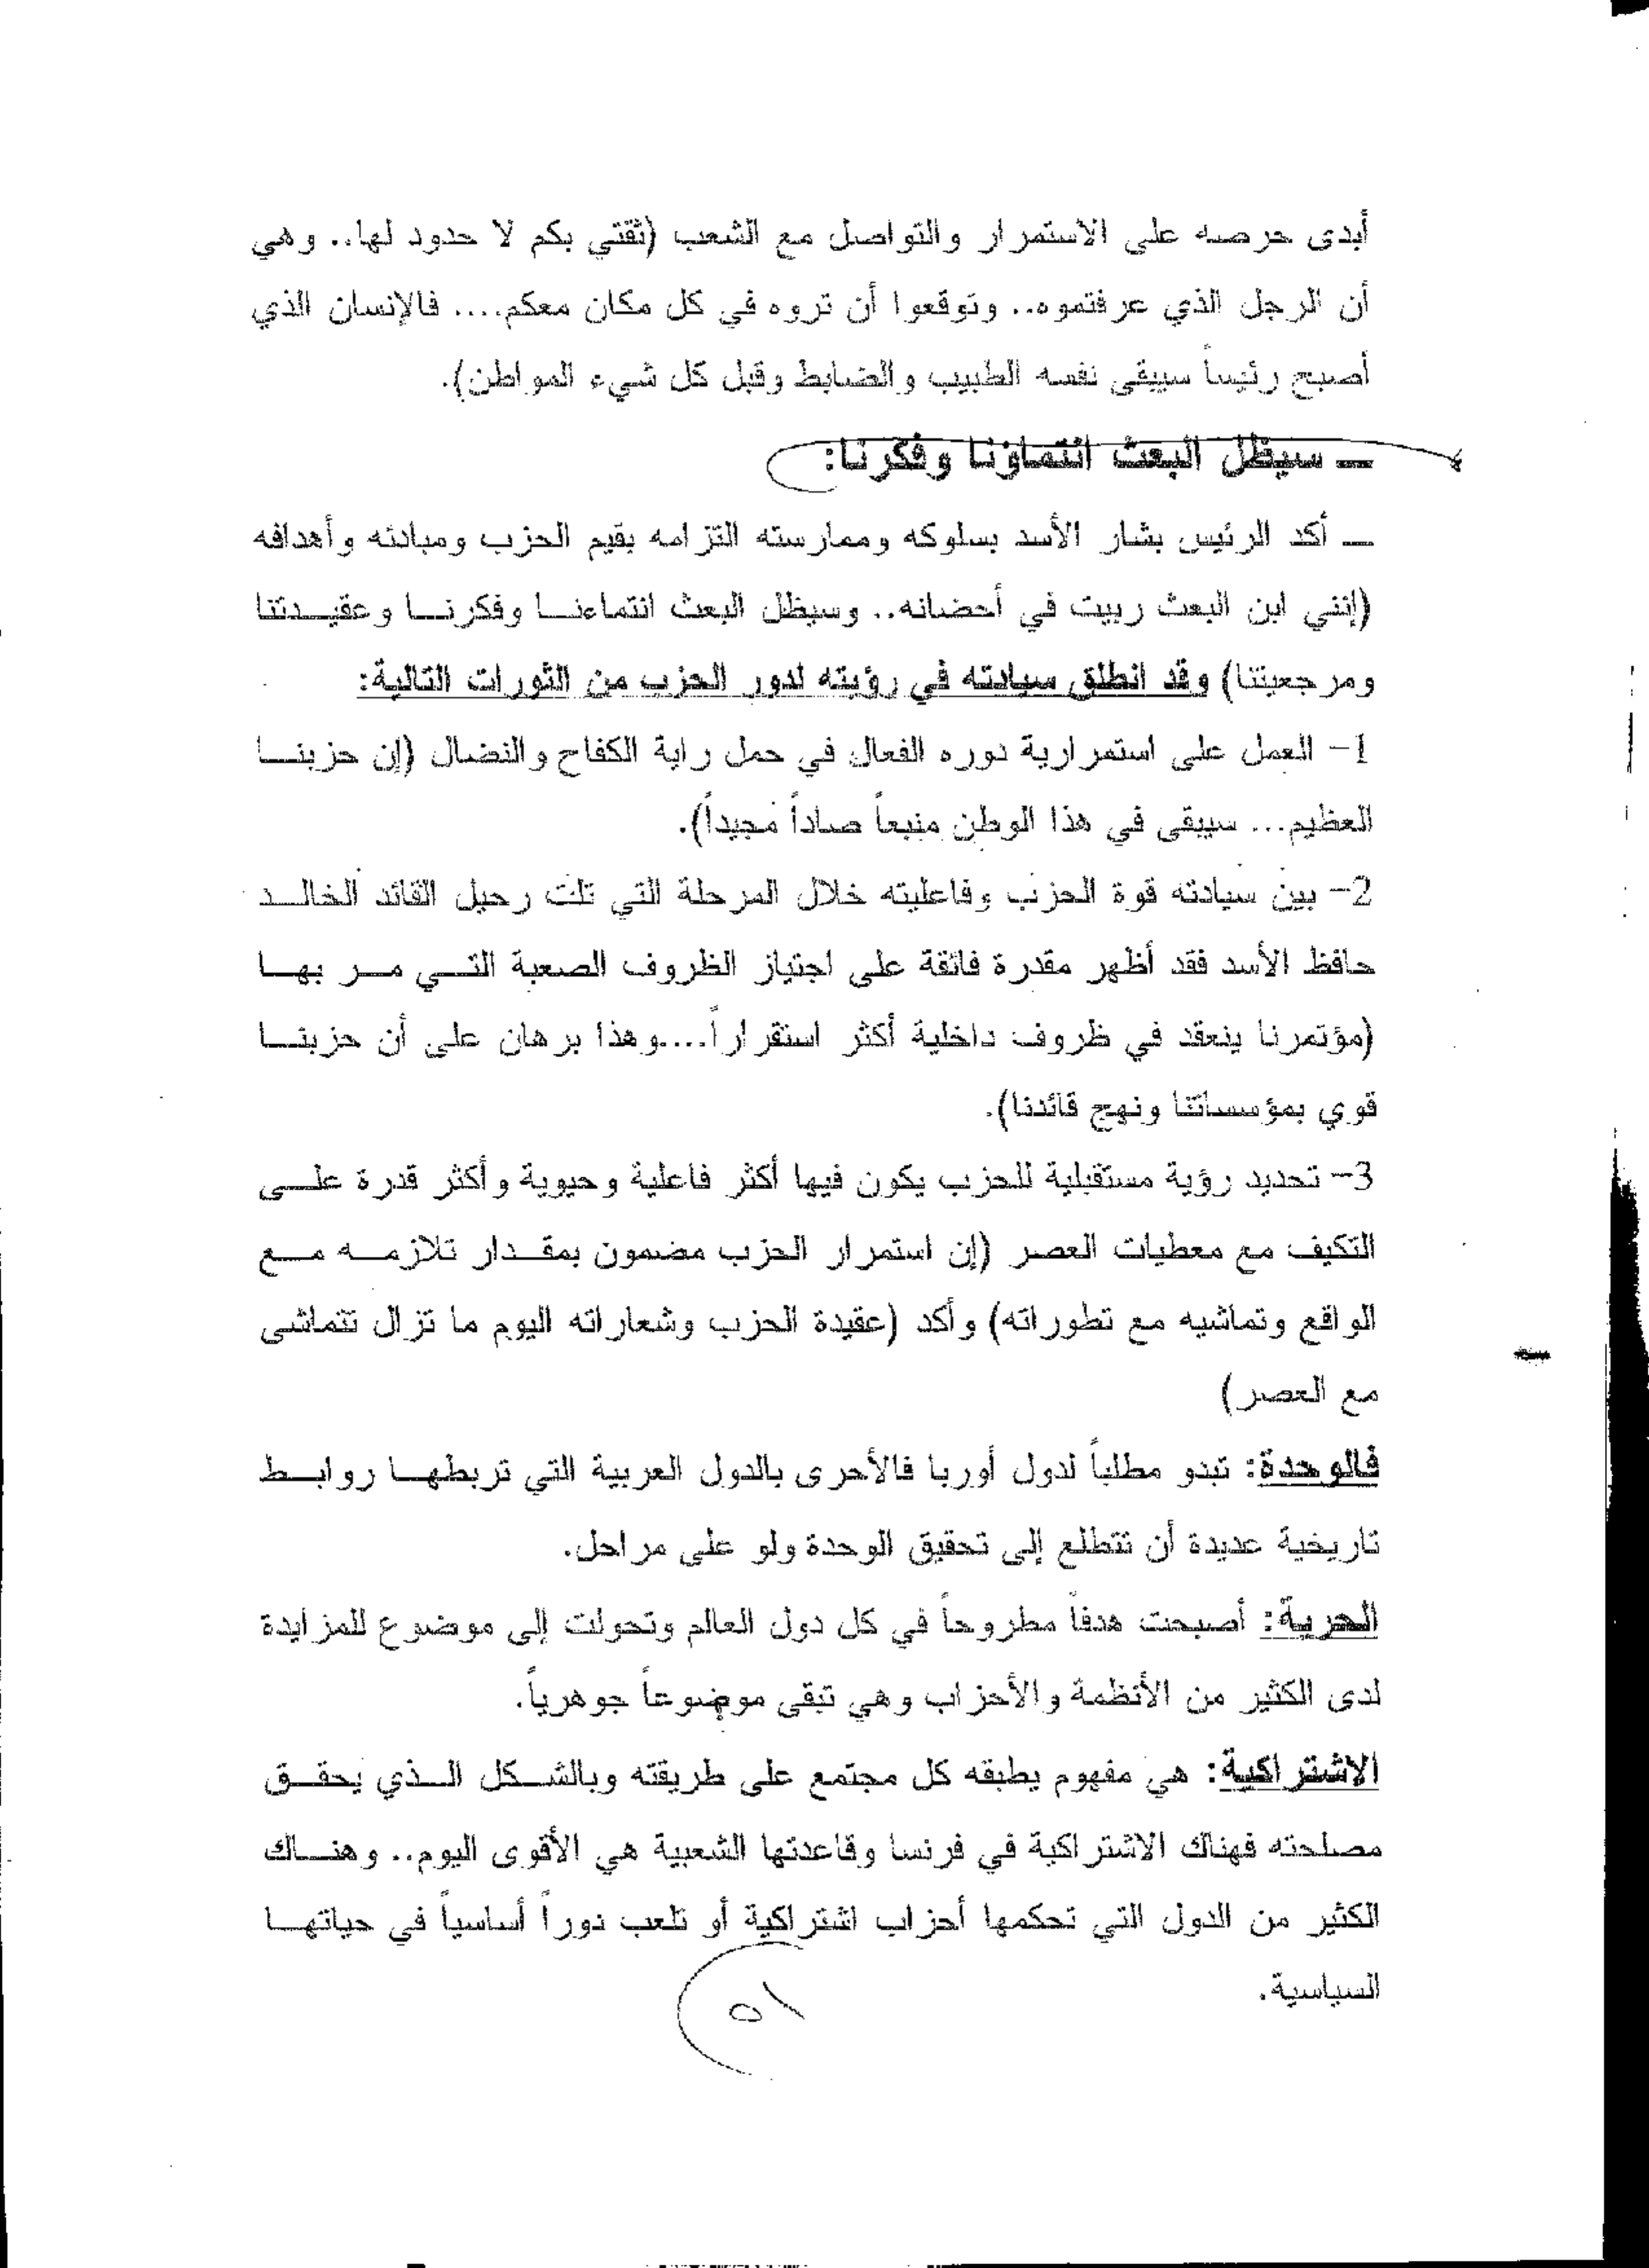 أبدى حرصه على الاستمرار والتواصل مع الشعب (ثقتي بكم لا حدود لها.. وهي
أن الرجل الذي عرفتموه.. وتوقعوا أن تروه في كل مكان معكم.... فالإنسان الذي
أصبح رئيساً سيبقى نفسه الطبيب والضابط وقبل كل شيء المواطن).
ــ سيظل البعث انتماؤنا وفكرنا:
ــ أكد الرئيس بشار الأسد بسلوكه وممارسته التزامه بقيم الحزب ومبادئه وأهدافه
(إنني ابن البعث ربيت في أحضانه.. وسيظل البعث انتماءنا وفكرنا وعقيدتنا
ومرجعيتنا) وقد انطلق سيادته في رؤيته لدور الحزب من الثورات التالية:
1- العمل على استمرارية دوره الفعال في حمل راية الكفاح والنضال (إن حزبنا
العظيم... سيبقى في هذا الوطن منبعاً صاداً مجيداً).
2- بين سيادته قوة الحزب وفاعليته خلال المرحلة التي تلت رحيل القائد الخالد
حافظ الأسد فقد أظهر مقدرة فائقة على اجتياز الظروف الصعبة التي مر بها
(مؤتمرنا ينعقد في ظروف داخلية أكثر استقراراً....وهذا برهان على أن حزبنا
قوي بمؤسساتنا ونهج قائدنا).
3- تحديد رؤية مستقبلية للحزب يكون فيها أكثر فاعلية وحيوية وأكثر قدرة على
التكيف مع معطيات العصر (إن استمرار الحزب مضمون بمقدار تلازمه مع
الواقع وتماشيه مع تطوراته) وأكد (عقيدة الحزب وشعاراته اليوم ما تزال تتماشى
مع العصر)
فالوحدة: تبدو مطلباً لدول أوربا فالأحرى بالدول العربية التي تربطها روابط
تاريخية عديدة أن تتطلع إلى تحقيق الوحدة ولو على مراحل.
الحرية: أصبحت هدفاً مطروحاً في كل دول العالم وتحولت إلى موضوع للمزايدة
لدى الكثير من الأنظمة والأحزاب وهي تبقى موضوعاً جوهرياً.
الاشتراكية: هي مفهوم يطبقه كل مجتمع على طريقته وبالشكل الذي يحقق
مصلحته فهناك الاشتراكية في فرنسا وقاعدتها الشعبية هي الأقوى اليوم.. وهناك
الكثير من الدول التي تحكمها أحزاب اشتراكية أو تلعب دوراً أساسياً في حياتها
السياسية.